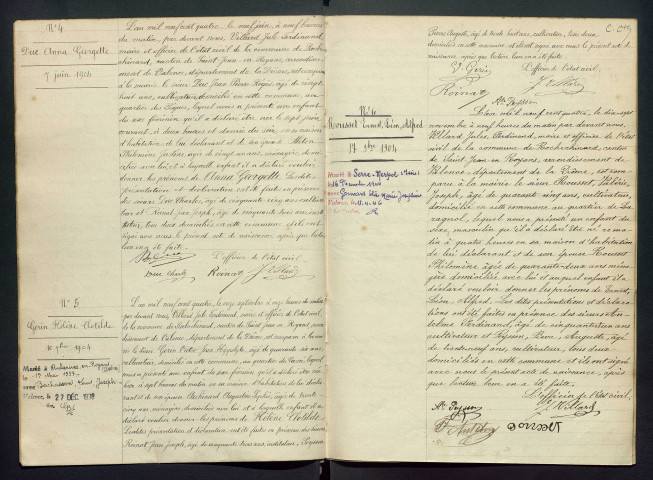 N° 4
Duc Anna Georgette
7 juin 1904
L'an mil neuf cent quatre, le huit juin, à neuf heures
du matin, par devant nous, Villard Jules Ferdinand,
maire et officier de l'état civil de la commune de Roche
chinard, canton de Saint Jean en Royans, arrondisse
ment de Valence, département de la Drôme, est comparu
à la mairie le sieur Duc Jean Pierre Régis, âgé de vingt
huit ans, cultivateur, domicilié en cette commune, au
quartier des lequel nous a présenté une enfant
du sexe féminin qu'il a déclaré être née le sept juin
courant à deux heures et demie du soir, en sa maison
d'habitation, de lui déclarant et de son épouse
Philomène âgée de vingt six ans, ménagère, domi
ciliée avec lui, et à laquelle enfant il a déclaré vouloir
donner les prénoms de Anna Georgette. Les dites
présentation et déclaration ont été faites en présence
des sieurs Duc Charles, âgé de cinquante cinq ans, cultiva
teur et Roinat Jean Joseph, âgé de quarante trois ans, insti
tuteur, tous deux domiciliés en cette commune et ils ont
signé avec nous le présent acte de naissance, après que lecture
leur en a été faite.
L'officier de l'état civil,
Duc Charles
Roinat
J. Villard
N° 5
Gérin Hélène Clotilde
10 7bre 1904
Marié à
le 17 Mai 1924
avec Bochassard Louis Joseph
Valence, le 27 DEC. 1938
L'an mil neuf cent quatre, le onze septembre à onze heures du matin
par devant nous, Villard Jules Ferdinand, maire et officier de l'état civil
de la commune de Rochechinard, canton de Saint Jean en Royans, arron
dissement de Valence, département de la Drôme, est comparu à la mairie
le sieur Gérin Victor Jean Hippolyte, âgé de quarante six ans,
cultivateur, domicilié en cette commune, au quartier lequel
nous a présenté une enfant du sexe féminin qu'il a déclaré être née
hier à sept heures du matin en sa maison d'habitation de lui décla
rant et de son épouse âgée de trente
cinq ans, ménagère domiciliée avec lui et à laquelle enfant il a
déclaré vouloir donner les prénoms de Hélène Clotilde.
Lesdites présentation et déclaration ont été faites en présence des sieurs
Roinat Jean Joseph, âgé de quarante trois ans, instituteur, Peysson
Pierre Auguste, âgé de trente huit ans, cultivateur, tous deux
domiciliés en cette commune et ils ont signé avec nous le présent acte de
naissance, après que lecture leur en a été faite.
V. Gérin
L'officier de l'état civil,
Roinat
J. Villard
Ate Peysson
N° 6
Rousset Ernest, Léon, Alfred
17 9bre 1904
Marié à Serre-Nerpol (Isère)
le 16 Décembre 1944
avec Germain
Valence, le 11.4.46
L'an mil neuf cent quatre, le dix-sept
novembre à neuf heures du matin par devant nous,
Villard Jules, Ferdinand, maire et officier de l'état
civil de la commune de Rochechinard, canton
de Saint Jean en Royans, arrondissement de
Valence, département de la Drôme, est com-
paru à la mairie le sieur Rousset, Valérie,
Joseph, âgé de quarante-cinq ans, cultivateur,
domicilié en cette commune au quartier de
lequel nous a présenté un enfant du
sexe masculin qu'il a déclaré être né ce ma
tin à quatre heures en sa maison d'habitation
de lui déclarant et de son épouse
Philomène âgée de quarante-deux ans ména-
gère domiciliée avec lui et auquel enfant il a
déclaré vouloir donner les prénoms de Ernest,
Léon, Alfred. Les dites présentation et déclara-
tion ont été faites en présence des sieurs An-
selme Ferdinand, de cinquante-six ans
cultivateur et Peysson, Pierre, Auguste, âgé
de trente-neuf ans, cultivateur, tous deux
domiciliés en cette commune et ils ont signé
avec nous le présent acte de naissance, après
que lecture leur en a été faite.
L'officier de l'état civil
Ate Peysson
J. Villard
F. Anselme
Rousset